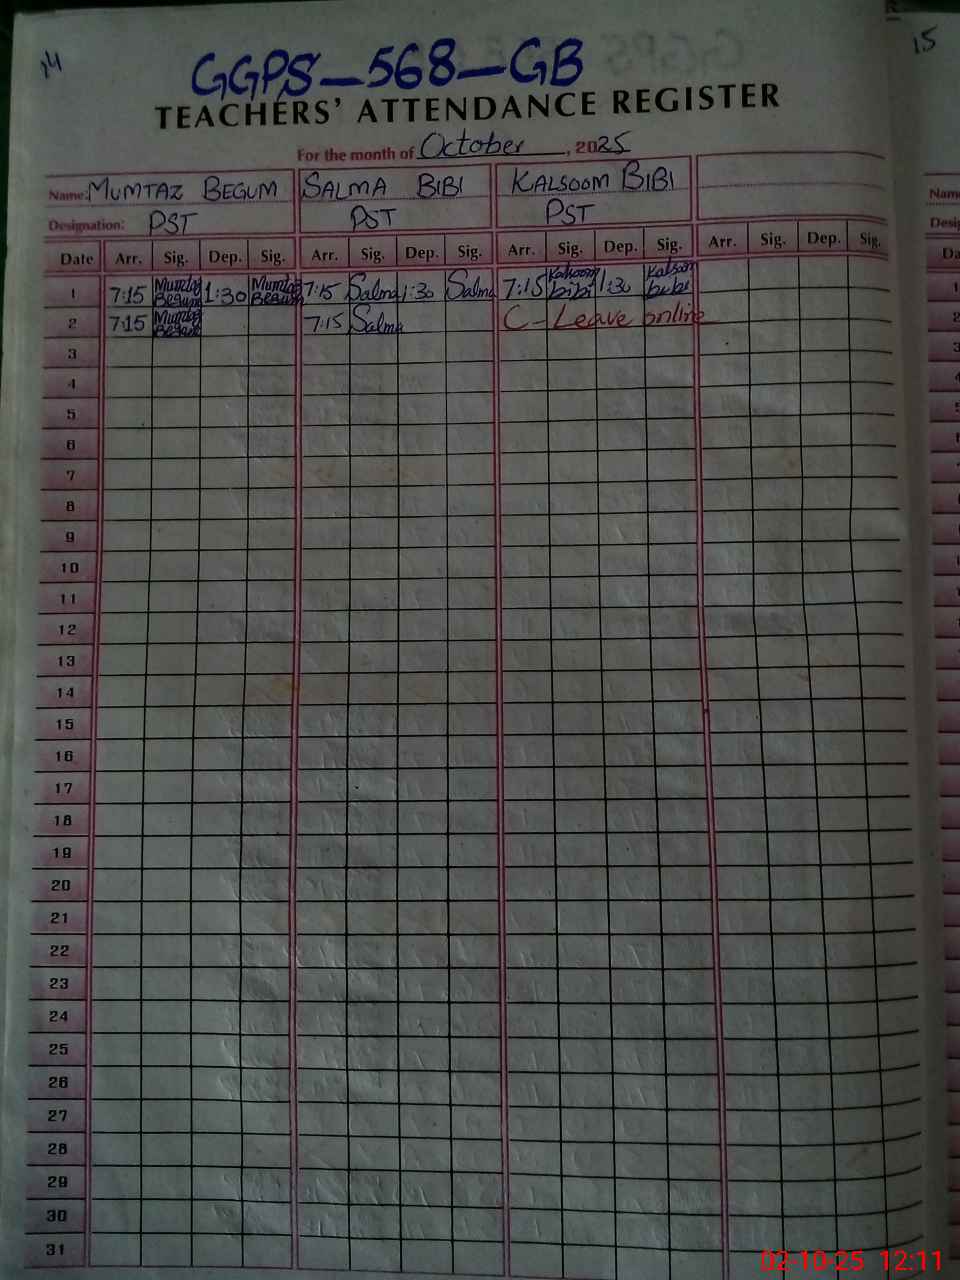 14
15
GGPS-568-GB
TEACHERS' ATTENDANCE REGISTER
For the month of October, 2025
Name: MUMTAZ BEGUM SALMA BIBI KALSOOM BIBI Name
Designation: PST PST PST
Date Arr. Sig. Dep. Sig. Arr. Sig. Dep. Sig. Arr. Sig. Dep. Sig. Arr. Sig. Dep. Sig.
1 7:15 Mumtaz Begum 1:30 Mumtaz Begum 7:15 Salma 1:30 Salma 7:15 Kalsoom bibi 1:30 Kalsoom bibi
2 7:15 Mumtaz Begum 7:15 Salma C-Leave online
3
4
5
6
7
8
9
10
11
12
13
14
15
16
17
18
19
20
21
22
23
24
25
26
27
28
29
30
31
02-10-25 12:11